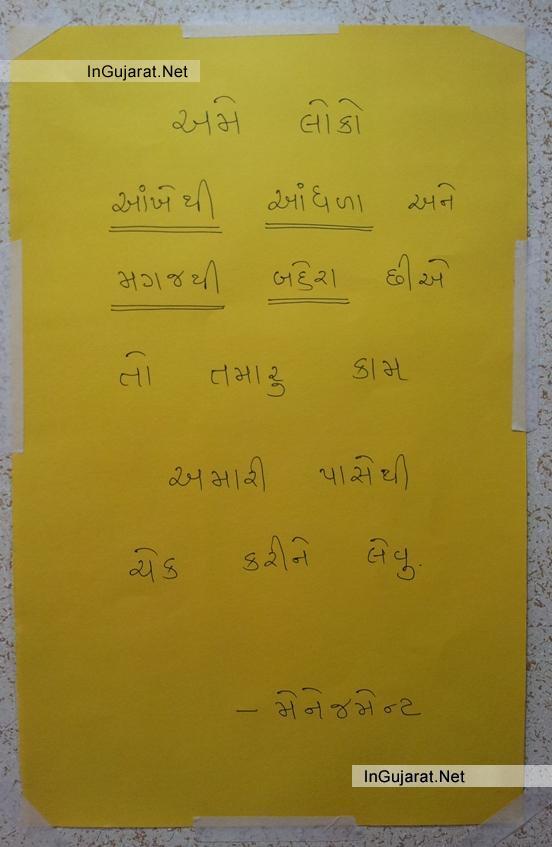 InGujarat.Net
અમે લોકો
આંખેથી આંધળા અને
મગજથી બહેરા છીએ
તો તમારુ કામ
અમારી પાસેથી
ચેક કરીને લેવુ.
– મેનેજમેન્ટ
InGujarat.Net